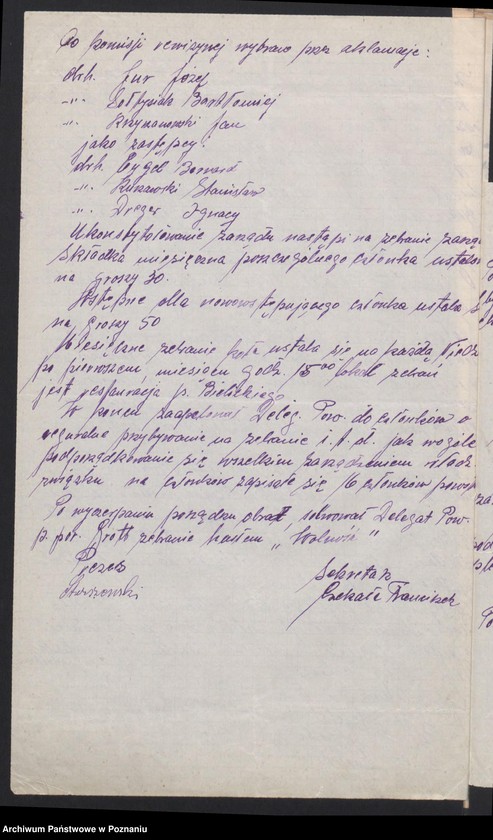 Do komisji rewizyjnej wybrano przez aklamację:
drh. Fur Józef
-„- Sołtysiak Bartłomiej
-„- Krzyżanowski Jan
jako zastępcy:
drh. Cygel Bernard
-„- Kukawski Stanisław
-„- Dreger Ignacy
Ukonstytułowanie zarządu nastąpi na zebranie zarzą
Składka miesięczna poszczególnego członka ustalon
na groszy 30.
Wstępne dla nowowstępującego członka ustala
na groszy 50
Miesięczne zebranie koła ustala się na każdą Niedz
po pierwszem miesiąca godz. 15 00 lokal zebrań
jest restauracja p. Bielickiego
W koncu zaapelował Deleg. Pow. do członków o
regularne przybywanie na zebranie i.t.d. jak wogóle
podporządkowanie się wszelkim zarządzeniom władz
związku na członków zapisało się 16 członków powyż
Po wyczerpaniu porządku obrad, solwował Delegat Pow.
p. por. Groth zebranie hasłem „Wolność"
Prezes
Sekretarz
Czekała Franciszek
Archiwum Państwowe w Poznaniu